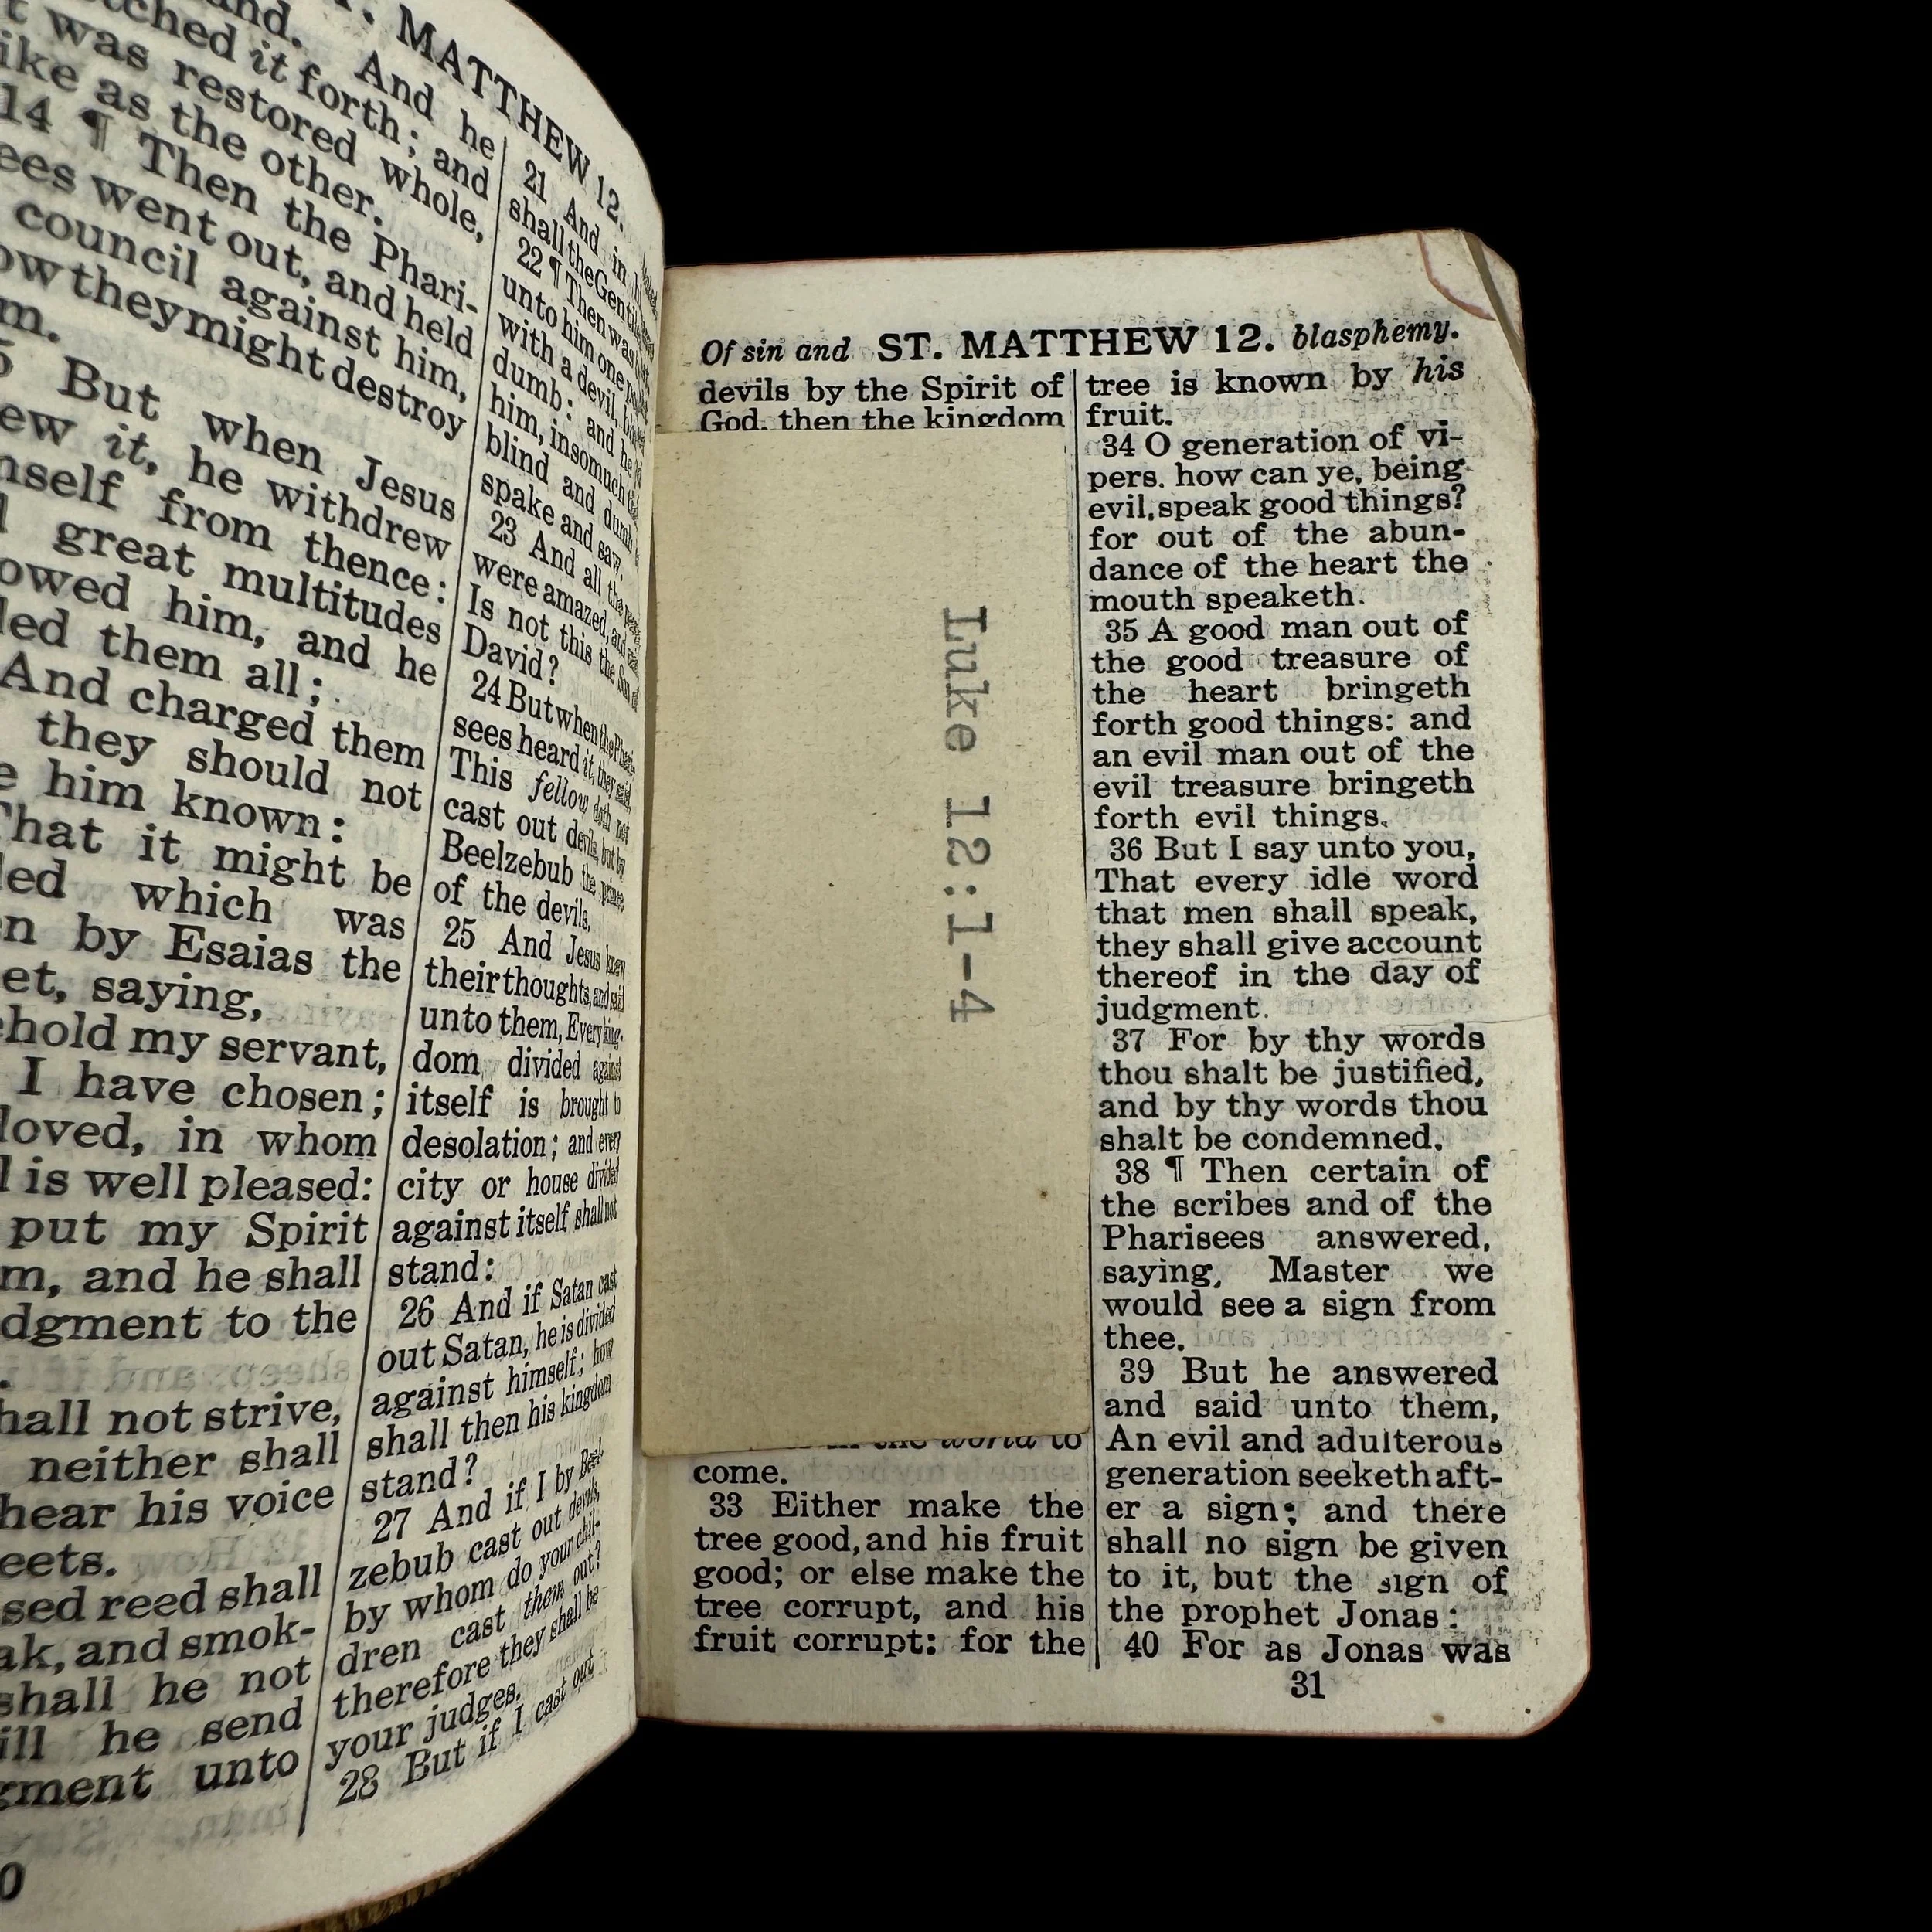 T. MATTHEW 12.
and. And he
tched it forth; and
t was restored whole,
ike as the other.
14 ¶ Then the Phari-
ees went out, and held
council against him,
ow they might destroy
m.
5 But when Jesus
ew it, he withdrew
nself from thence:
great multitudes
owed him, and he
led them all;
And charged them
they should not
e him known:
That it might be
led which was
n by Esaias the
et, saying,
ehold my servant,
I have chosen;
loved, in whom
l is well pleased:
put my Spirit
m, and he shall
dgment to the
hall not strive,
neither shall
hear his voice
eets.
sed reed shall
ak, and smok-
shall he not
ill he send
gment unto
21 And in
shall the Gentil
22 ¶ Then was
unto him one
with a devil,
dumb: and he
him, insomuch
blind and dumb
spake and saw.
23 And all the
were amazed, and
Is not this the Son of
David?
24 But when the Phari-
sees heard it, they said,
This fellow doth not
cast out devils, but by
Beelzebub the prince
of the devils.
25 And Jesus knew
their thoughts, and said
unto them, Every king-
dom divided against
itself is brought to
desolation; and every
city or house divided
against itself shall not
stand:
26 And if Satan cast
out Satan, he is divided
against himself; how
shall then his kingdom
stand?
27 And if I by Beel-
zebub cast out devils,
by whom do your chil-
dren cast them out?
therefore they shall be
your judges.
28 But if I cast out
0
Of sin and ST. MATTHEW 12. blasphemy.
devils by the Spirit of
God, then the kingdom
Luke 12:1-4
in the world to
come.
33 Either make the
tree good, and his fruit
good; or else make the
tree corrupt, and his
fruit corrupt: for the
tree is known by his
fruit.
34 O generation of vi-
pers. how can ye, being
evil, speak good things?
for out of the abun-
dance of the heart the
mouth speaketh.
35 A good man out of
the good treasure of
the heart bringeth
forth good things: and
an evil man out of the
evil treasure bringeth
forth evil things.
36 But I say unto you,
That every idle word
that men shall speak,
they shall give account
thereof in the day of
judgment.
37 For by thy words
thou shalt be justified,
and by thy words thou
shalt be condemned.
38 ¶ Then certain of
the scribes and of the
Pharisees answered,
saying, Master we
would see a sign from
thee.
39 But he answered
and said unto them,
An evil and adulterous
generation seeketh aft-
er a sign; and there
shall no sign be given
to it, but the sign of
the prophet Jonas:
40 For as Jonas was
31